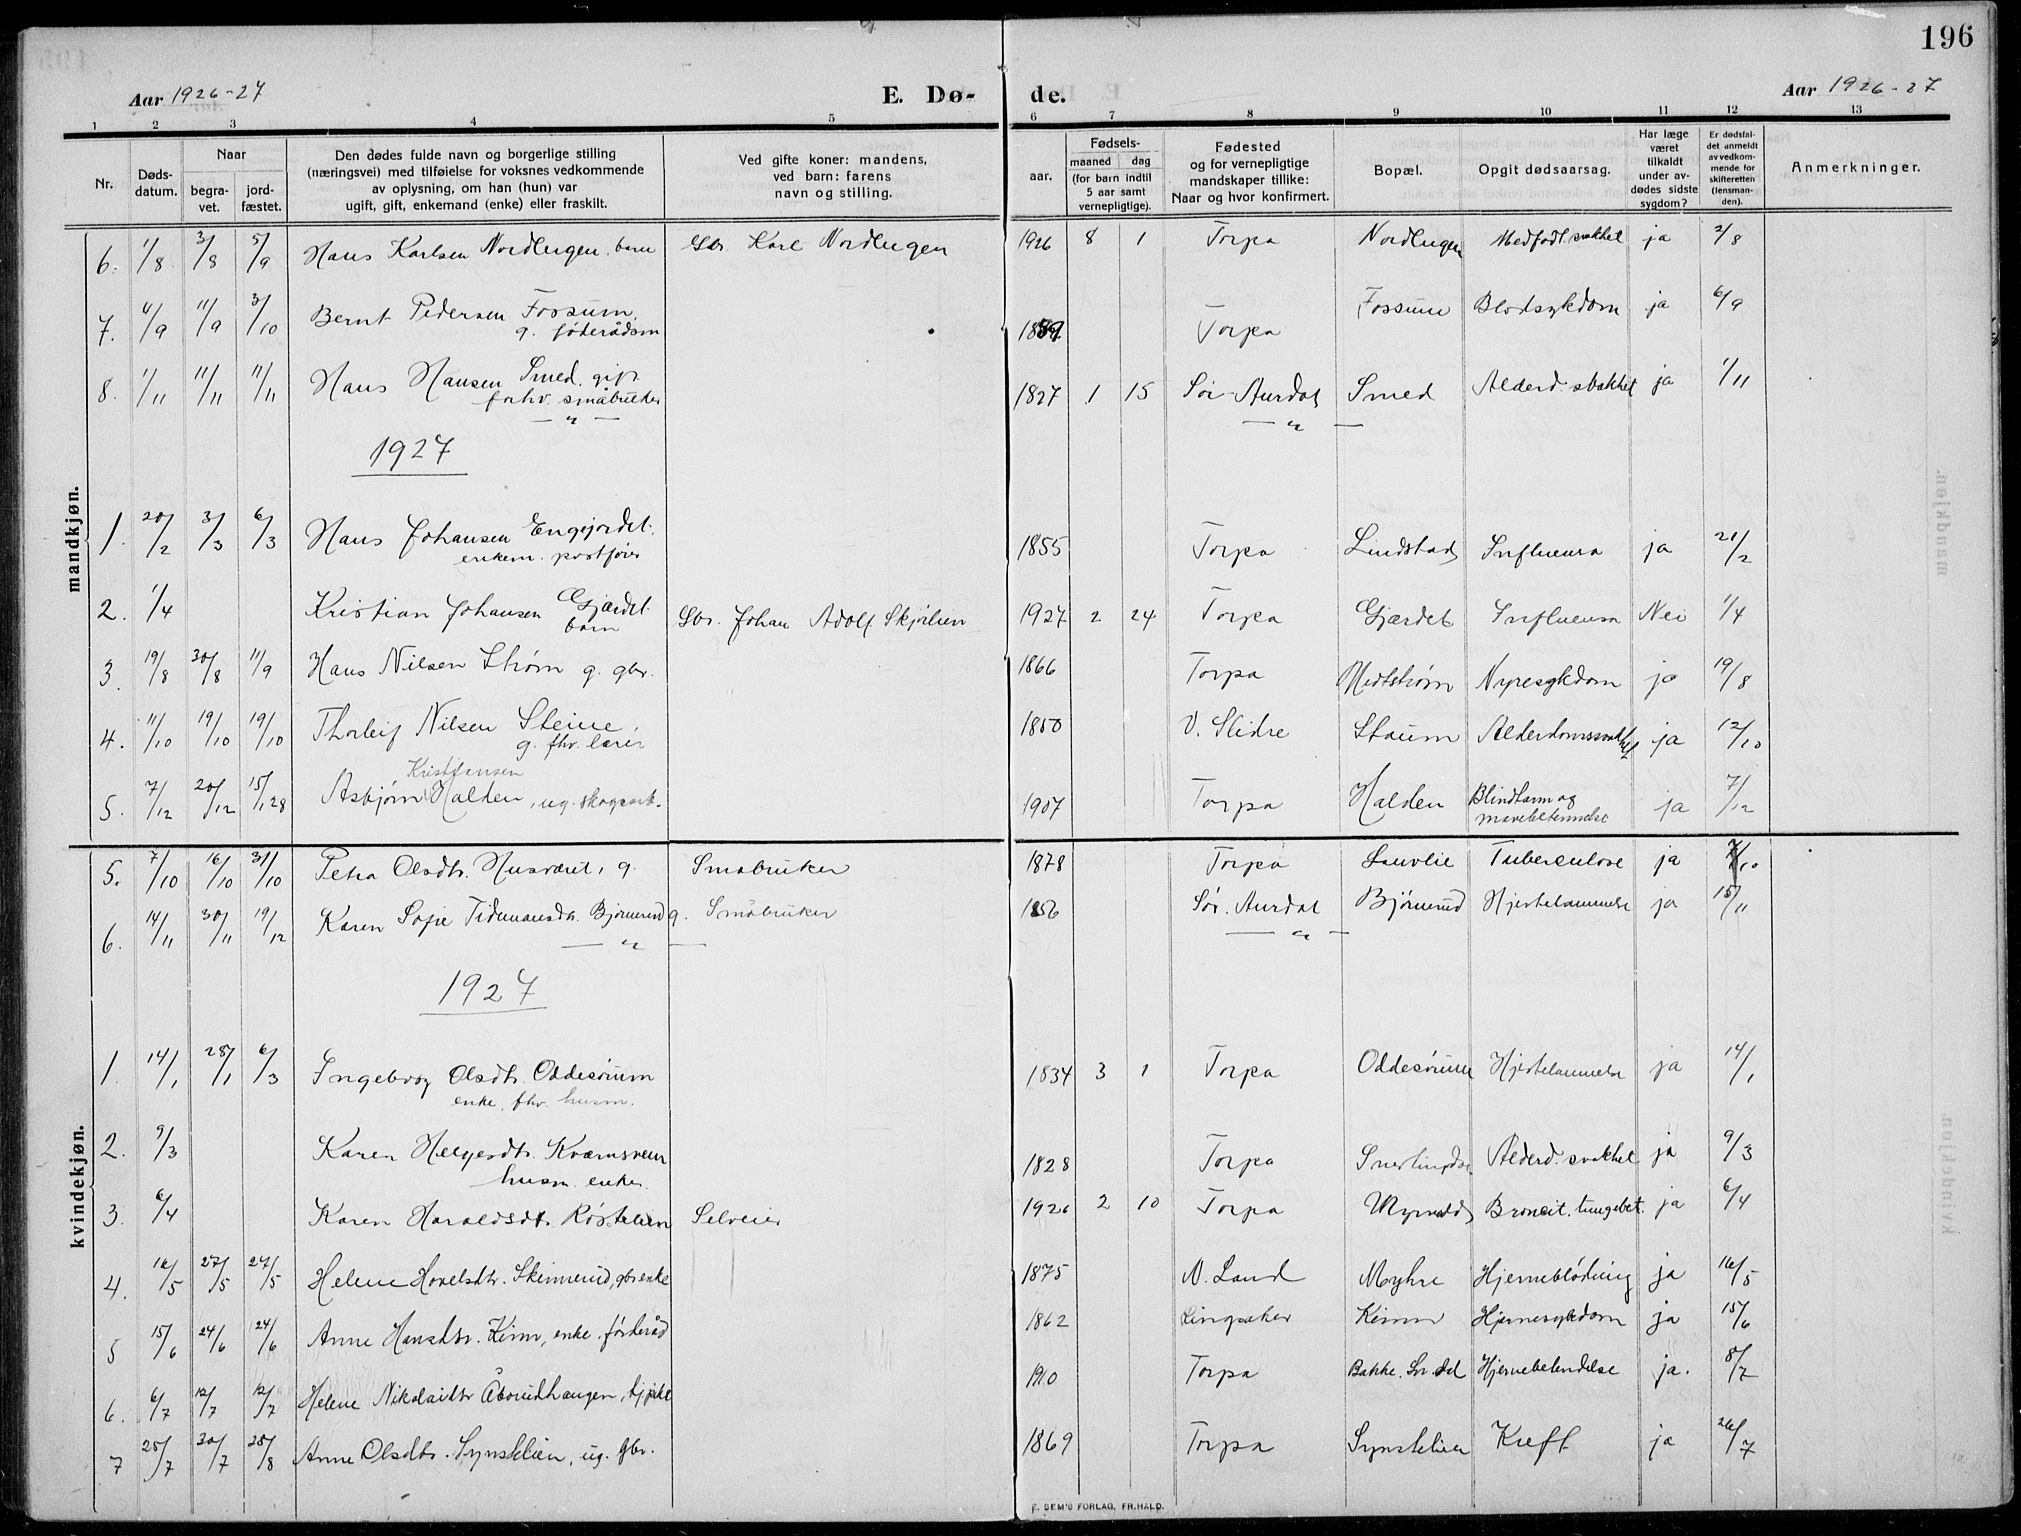 196
Aar 1926-27 E. Dø- de. Aar 1926-27
1 2 3 4 5 6 7 8 9 10 11 12 13
Nr.
Døds-
datum.
Naar
begra-
vet.
jord-
fæstet.
Den dødes fulde navn og borgerlige stilling
(næringsvei) med tilføielse for voksnes vedkommende
av oplysning, om han (hun) var
ugift, gift, enkemand (enke) eller fraskilt.
Ved gifte koner: mandens,
ved barn: farens
navn og stilling.
Fødsels-
aar.
maaned dag
(for barn indtil
5 aar samt
vernepligtige).
Fødested
og for vernepligtige
mandskaper tillike:
Naar og hvor konfirmert.
Bopæl.
Opgit dødsaarsag.
Har læge
været
tilkaldt
under av-
dødes sidste
sygdom?
Er dødsfal-
det anmeldt
av vedkom-
mende for
skifteretten
(lensman-
den).
Anmerkninger.
mandkjøn.
6. 1/8 3/8 5/9 Hans Karlsen Nordlengen. barn Gbr. Karl Nordlengen 1926 8 1 Torpa Nordlengen Medfødt svakhet ja 2/8
7. 4/9 11/9 3/10 Bernt Pedersen Fossum, Torpa Fossum Blodsykdom ja 6/9
g. føderådsm
8. 1/11 11/11 11/11 Hans Hansen Smed. gift 1827 1 15 Sør-Aurdal Smed Alderd. svakhet ja 1/11
forhv. småbruker
— " — — " —
1927
1. 20/2 3/3 6/3 Hans Johansen Engejordet. 1855 Torpa Lindstad Influensa ja 21/2
enkem. postfører
2. 1/4 Kristian Johansen Gjærdet. Gbr. Johan Adolf Skjølien 1927 2 24 Torpa Gjærdet Influensa Nei 1/4
barn
3. 19/8 30/8 11/9 Hans Nilsen Strøm g. gbr. 1866 Torpa Midtstrøm Nyresykdom ja 19/8
4. 11/10 19/10 19/10 Thorleif Nilsen Steine, 1850 V. Slidre Staum Alderdomssvakhet ja 12/10
g. fhv. lærer
Kristiansen
5. 7/12 20/12 15/1 28 Asbjørn Halden, ug. skogsarb. 1907 Torpa Halden Blindtarm og ja 7/12
mavebetennelse
kvindekjøn.
5. 7/10 16/10 31/10 Petra Olsdtr. Husværet, g. Småbruker 1878 Torpa Lauvlie Tuberculose ja 7/10
6. 14/11 30/11 19/12 Karen Sofie Tidemansdtr. Bjørnerud g. Småbruker 1856 Sør. Aurdal Bjørnerud Hjertelammelse ja 15/11
— " — — " —
1927
1. 14/1 28/1 6/3 Ingeborg Olsdtr. Oddesørum 1834 3 1 Torpa Oddesørum Hjertelammelse ja 14/1
enke, fhv. husm.
2. 9/3 Karen Helgesdtr. Kværnsveen 1828 Torpa Alderd. svakhet ja 9/3
husm. enke
3. 6/4 Karen Haraldsdt. Røstelien Selveier 1926 2 10 Torpa Broncit. lungebet. ja 6/4
4. 16/5 27/5 27/5 Helene Hovelsdtr. Skinnerud, gbr enke 1875 N. Land Myhre Hjerneblødning ja 16/5
5 15/6 24/6 24/6 Anne Hansdtr. Kinn, enke. føderåd 1862 Ringsaker Kinn Hjernesykdom ja 15/6
6. 6/7 12/7 12/7 Helene Nikolaidtr Åborudhaugen, tj.pike 1910 Torpa Bakke. Sn.dal Hjernebetendelse ja. 8/7
7 25/7 30/7 28/8 Anne Olsdtr. Synstelien, ug. Gbr. 1869 Torpa Synstelien Kreft ja 26/7
E. SEM'S FORLAG, FR.HALD.